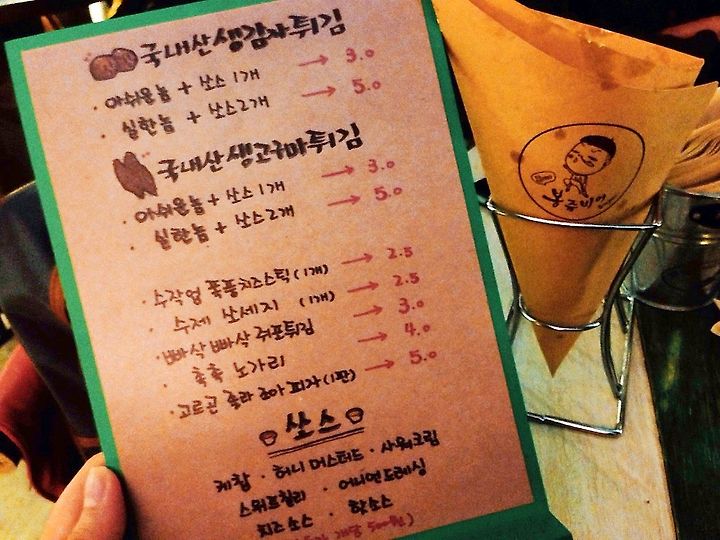 국내산 생감자튀김
· 아쉬운놈 + 쏘스 1개 → 3.0
· 실한놈 + 쏘스 2개 → 5.0
국내산 생고구마튀김
· 아쉬운놈 + 쏘스 1개 → 3.0
· 실한놈 + 쏘스 2개 → 5.0
· 수작업 쭉쭝치즈스틱 (1개) → 2.5
· 수제 쏘세지 (1개) → 2.5
· 빠삭 빠삭 쥐포튀김 → 3.0
· 촉촉 노가리 → 4.0
· 고르곤 졸라 조아 피자 (1판) → 5.0
쏘스
케찹 · 허니 머스터드 · 사워크림
스위트칠리 · 어니언드레싱
치즈소스 · 핫소스
개당 500원)